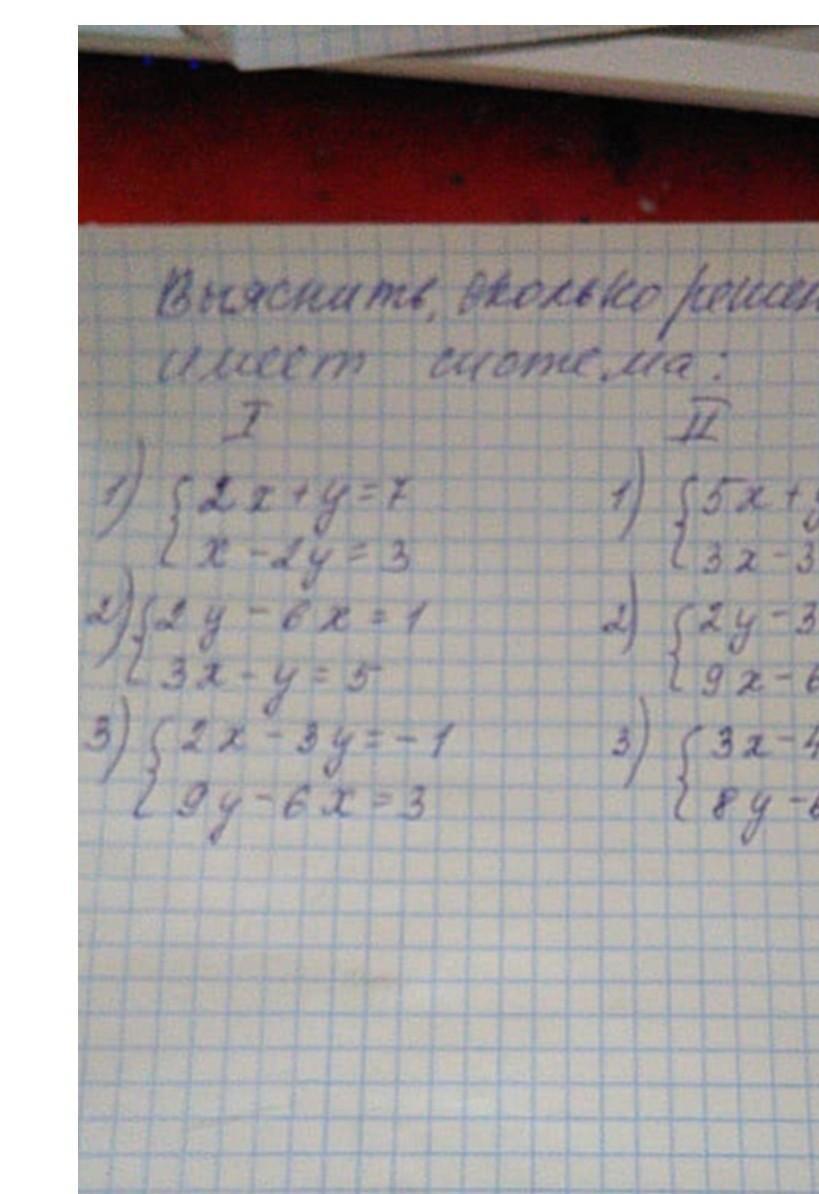 Выяснить, сколько решен
имеет система:
I
1) { 2x + y = 7
x - 2y = 3
2) { 2y - 6x = 1
3x - y = 5
3) { 2x - 3y = -1
9y - 6x = 3
II
1) { 5x + y
3x - 3
2) { 2y - 3
9x - 6
3) { 3x - 4
8y - 6